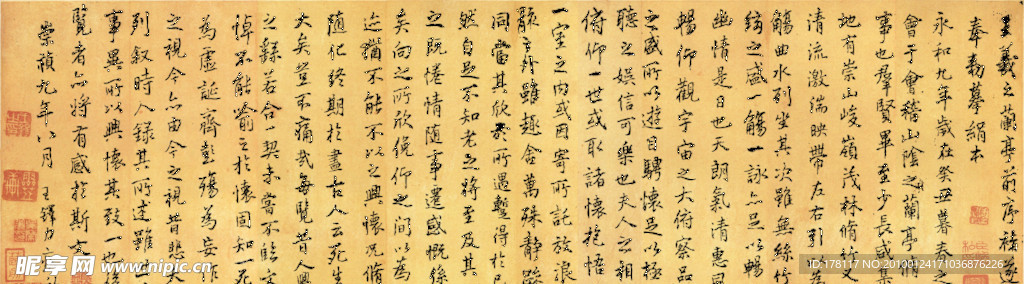 王羲之蘭亭前序褚遂
奉勅摹絹本
永和九年歲在癸丑暮春之
會于會稽山陰之蘭亭脩
事也羣賢畢至少長咸集
地有崇山峻嶺茂林脩竹又
清流激湍映帶左右引以為
觴曲水列坐其次雖無絲竹
絃之盛一觴一詠亦足以暢
幽情是日也天朗氣清惠風
暢仰觀宇宙之大俯察品
之盛所以遊目騁懷足以極
聽之娛信可樂也夫人之相
俯仰一世或取諸懷抱悟
一室之内或因寄所託放浪
骸之外雖趣舍萬殊靜躁
同當其欣於所遇蹔得於己
然自足不知老之將至及其
之既惓情隨事遷感慨係
矣向之所欣俛仰之間以為
迹猶不能不以之興懷況脩
隨化終期於盡古人云死生
大矣豈不痛哉每覽昔人興
之繇若合一契未嘗不臨文
悼不能喻之於懷固知一死
為虛誕齊彭殤為妄作
之視今亦由今之視昔悲夫
列敘時人錄其所述雖
事異所以興懷其致一也
覽者亦將有感於斯文
崇禎九年八月 王鐸
昵享网 www.nipic.cn
ID:178117 NO:20100124171036876226